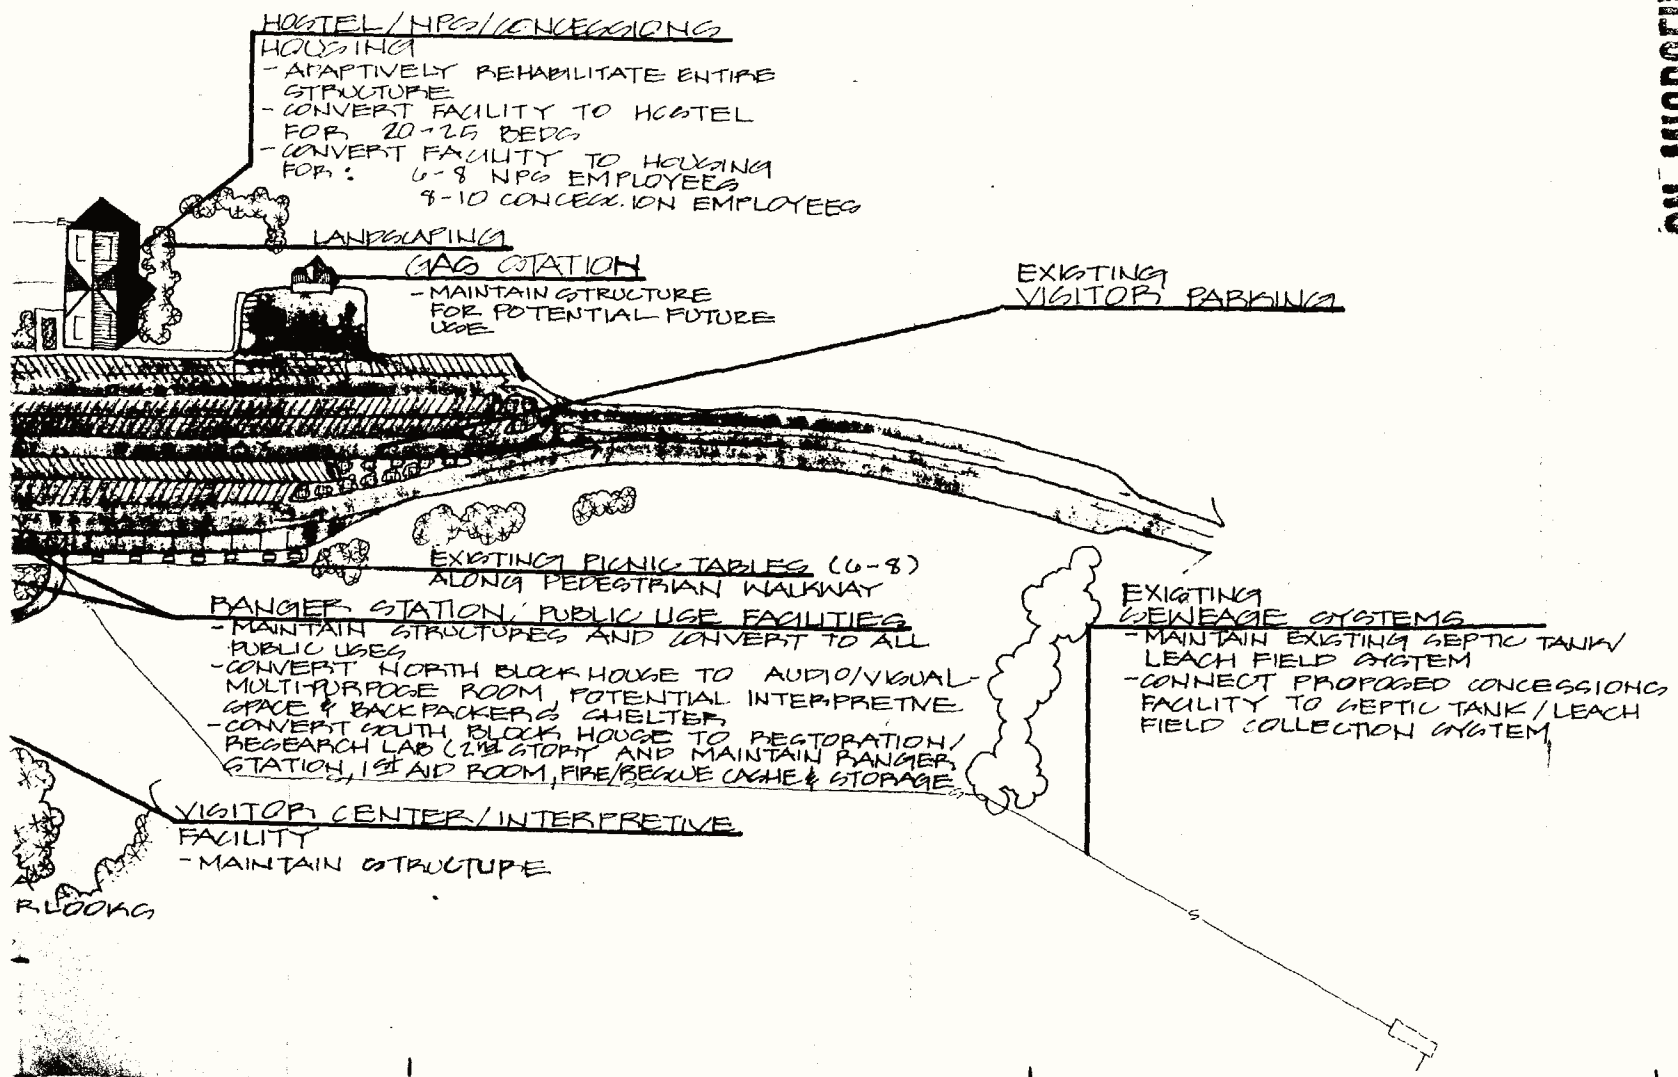 HOSTEL/NPS/CONCESSIONS
HOUSING
- ADAPTIVELY REHABILITATE ENTIRE
STRUCTURE
- CONVERT FACILITY TO HOSTEL
FOR 20-25 BEDS
- CONVERT FACILITY TO HOUSING
FOR: 6-8 NPS EMPLOYEES
8-10 CONCESSION EMPLOYEES
LANDSCAPING
GAS STATION
- MAINTAIN STRUCTURE
FOR POTENTIAL FUTURE
USE
EXISTING
VISITOR PARKING
EXISTING PICNIC TABLES (6-8)
ALONG PEDESTRIAN WALKWAY
RANGER STATION, PUBLIC USE FACILITIES
- MAINTAIN STRUCTURES AND CONVERT TO ALL
PUBLIC USES
- CONVERT NORTH BLOCK HOUSE TO AUDIO/VISUAL
MULTI-PURPOSE ROOM, POTENTIAL INTERPRETIVE
SPACE & BACKPACKERS SHELTER
- CONVERT SOUTH BLOCK HOUSE TO RESTORATION/
RESEARCH LAB (2nd STORY AND MAINTAIN RANGER
STATION, 1st AID ROOM, FIRE/RESCUE CACHE & STORAGE
EXISTING
SEWEAGE SYSTEMS
- MAINTAIN EXISTING SEPTIC TANK/
LEACH FIELD SYSTEM
- CONNECT PROPOSED CONCESSIONS
FACILITY TO SEPTIC TANK/LEACH
FIELD COLLECTION SYSTEM
VISITOR CENTER/INTERPRETIVE
FACILITY
- MAINTAIN STRUCTURE
RLOOKS
S